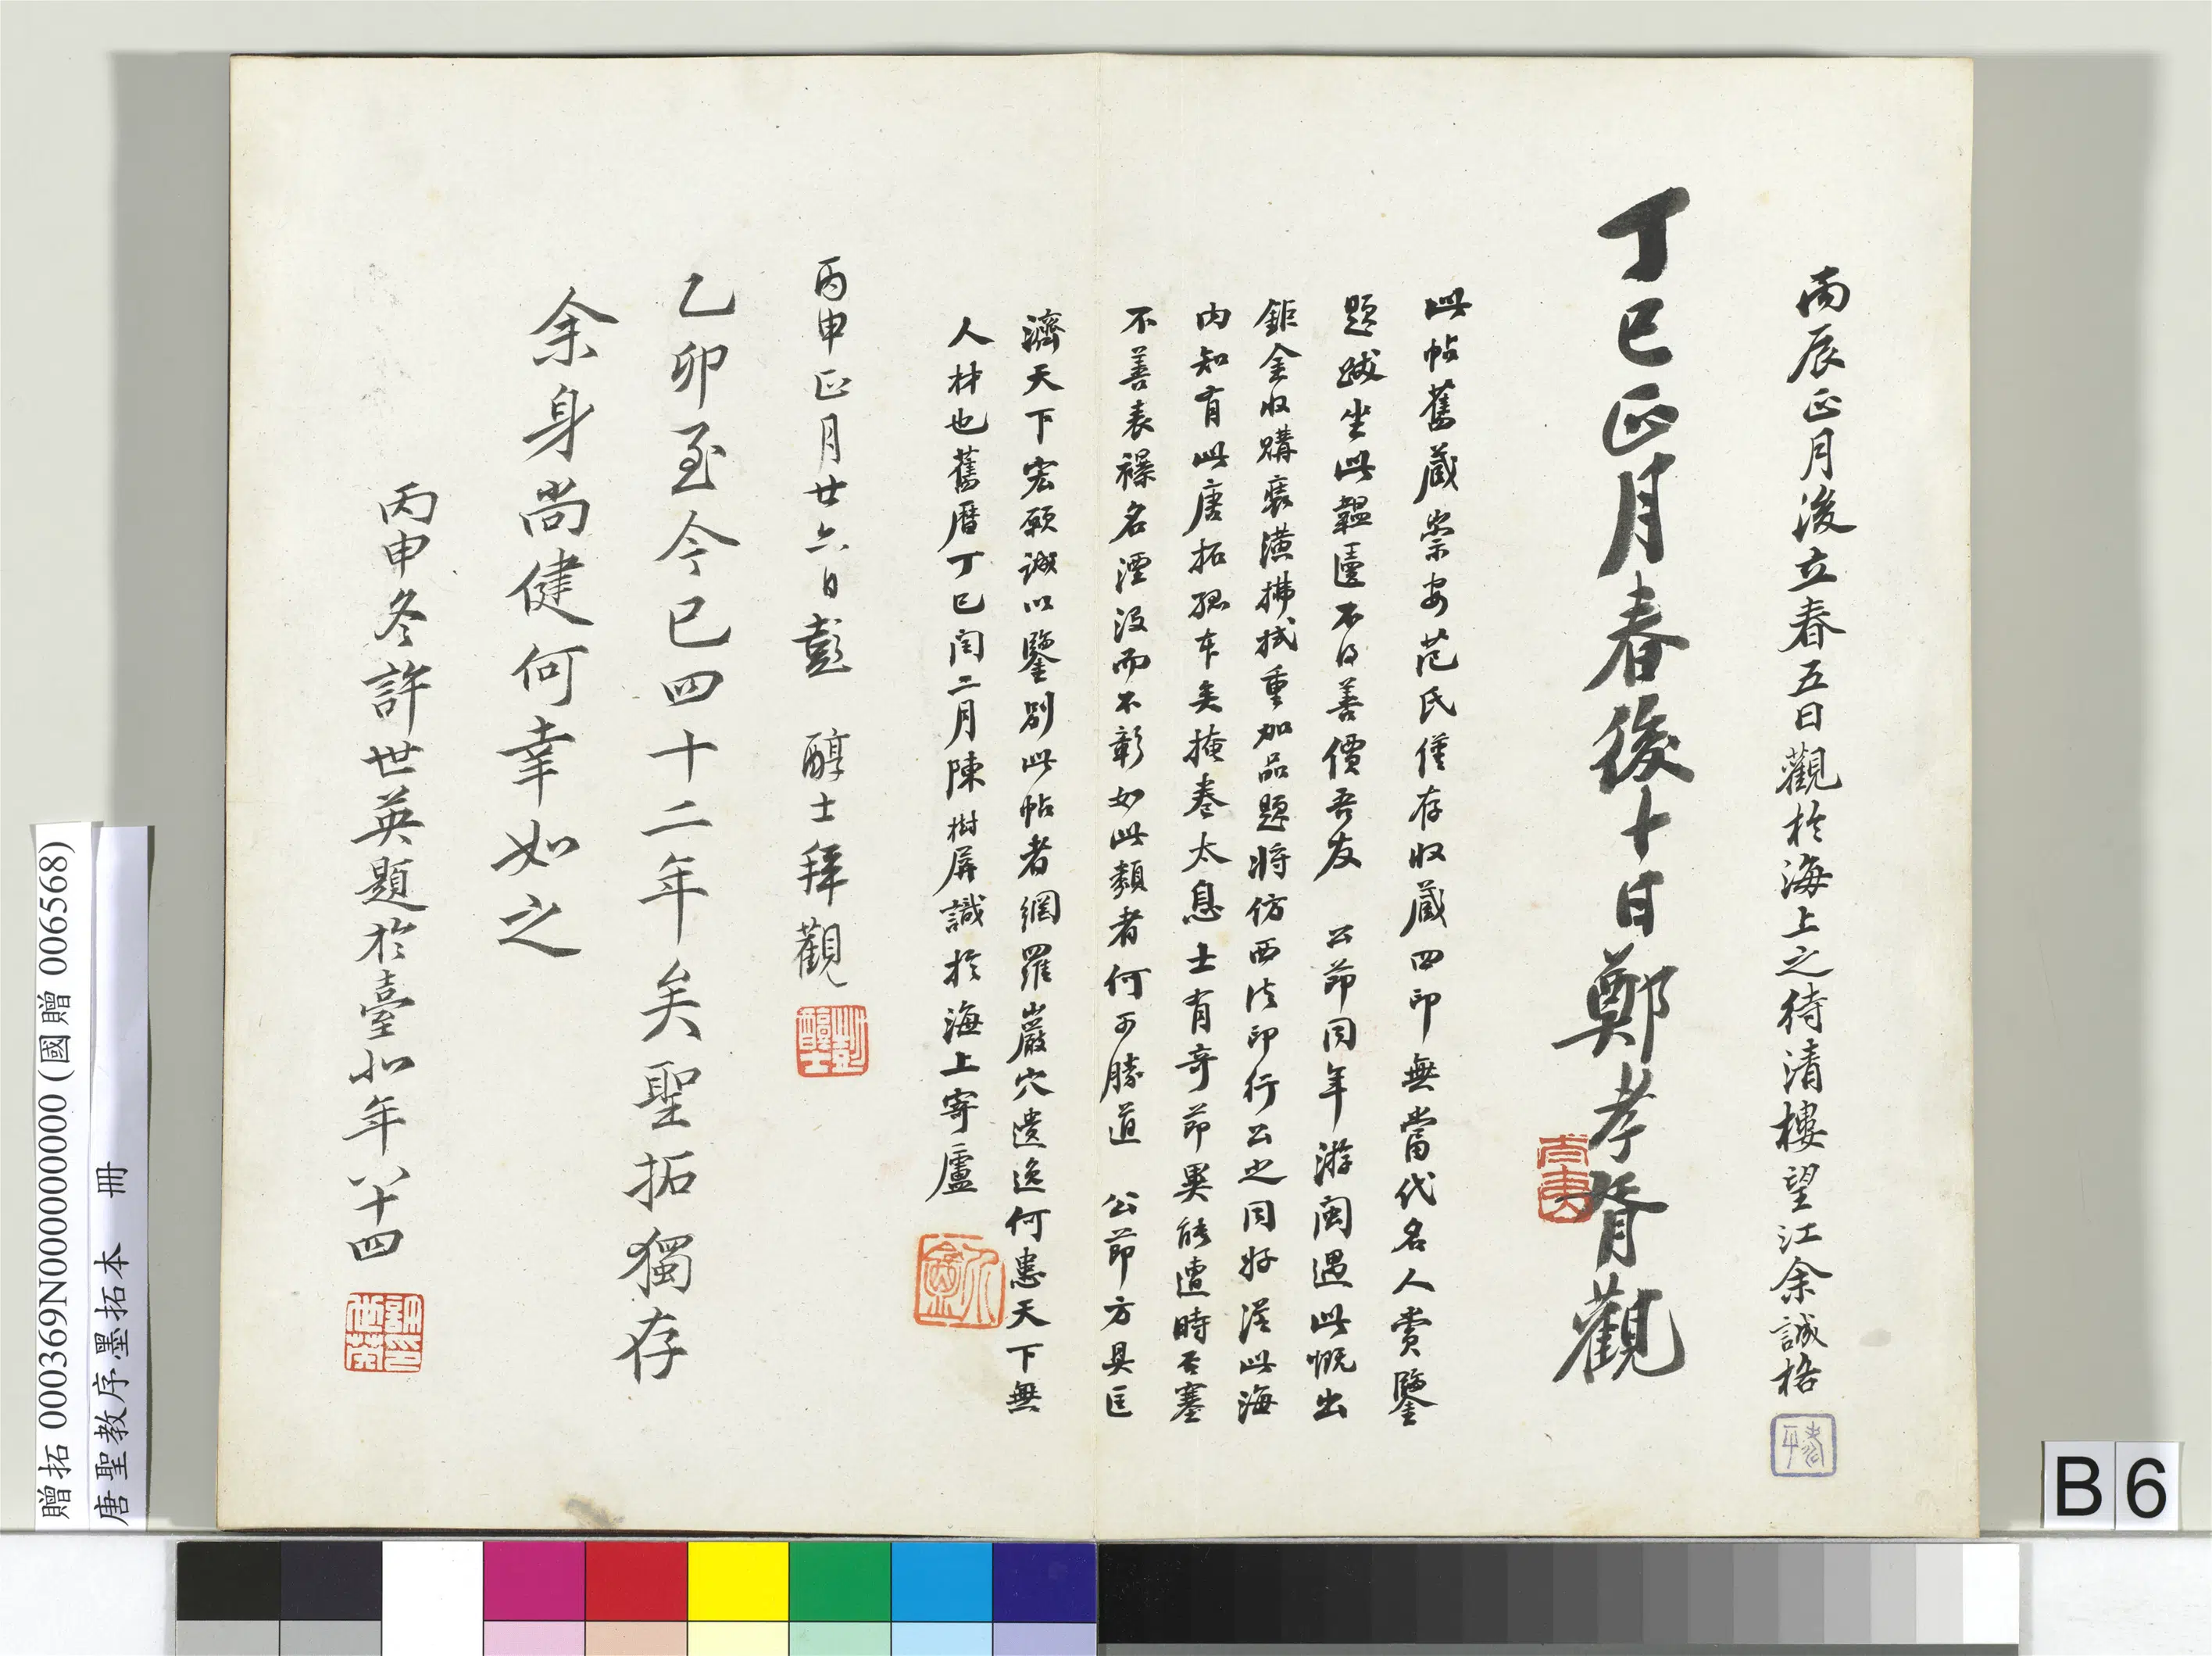 丙辰正月後立春五日觀於海上之待清樓望江余誠格
丁巳正月春後十日鄭孝胥觀
此帖舊藏崇安范氏僅存收藏四印無當代名人賞鑒
題跋坐此韞匵不得善價吾友　公節同年游閩遇此慨出
鉅金收購裝潢拂拭重加品題將仿西法印行公之同好從此海
內知有此唐拓孤本矣掩卷太息士有奇節異能遭時否塞
不善表襮名湮沒而不彰如此類者何可勝道　公節方具匡
濟天下宏願誠以鑒別此帖者網羅巖穴遺逸何患天下無
人材也舊曆丁巳閏二月陳樹屏識於海上寄廬
丙申正月廿六日彭　醇士拜觀
彭醇士
乙卯至今已四十二年矣聖拓獨存
余身尚健何幸如之
丙申冬許世英題於臺北年八十四
贈拓 000369N000000000 (國贈 006568)
唐聖教序墨拓本　冊
B6